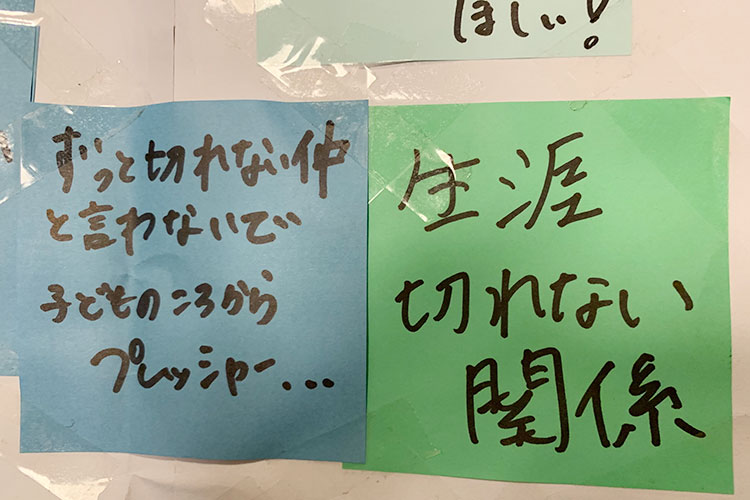 ほしい!
ずっと切れない仲
と言わないで
子どものころから
プレッシャー...
生涯
切れない
関係